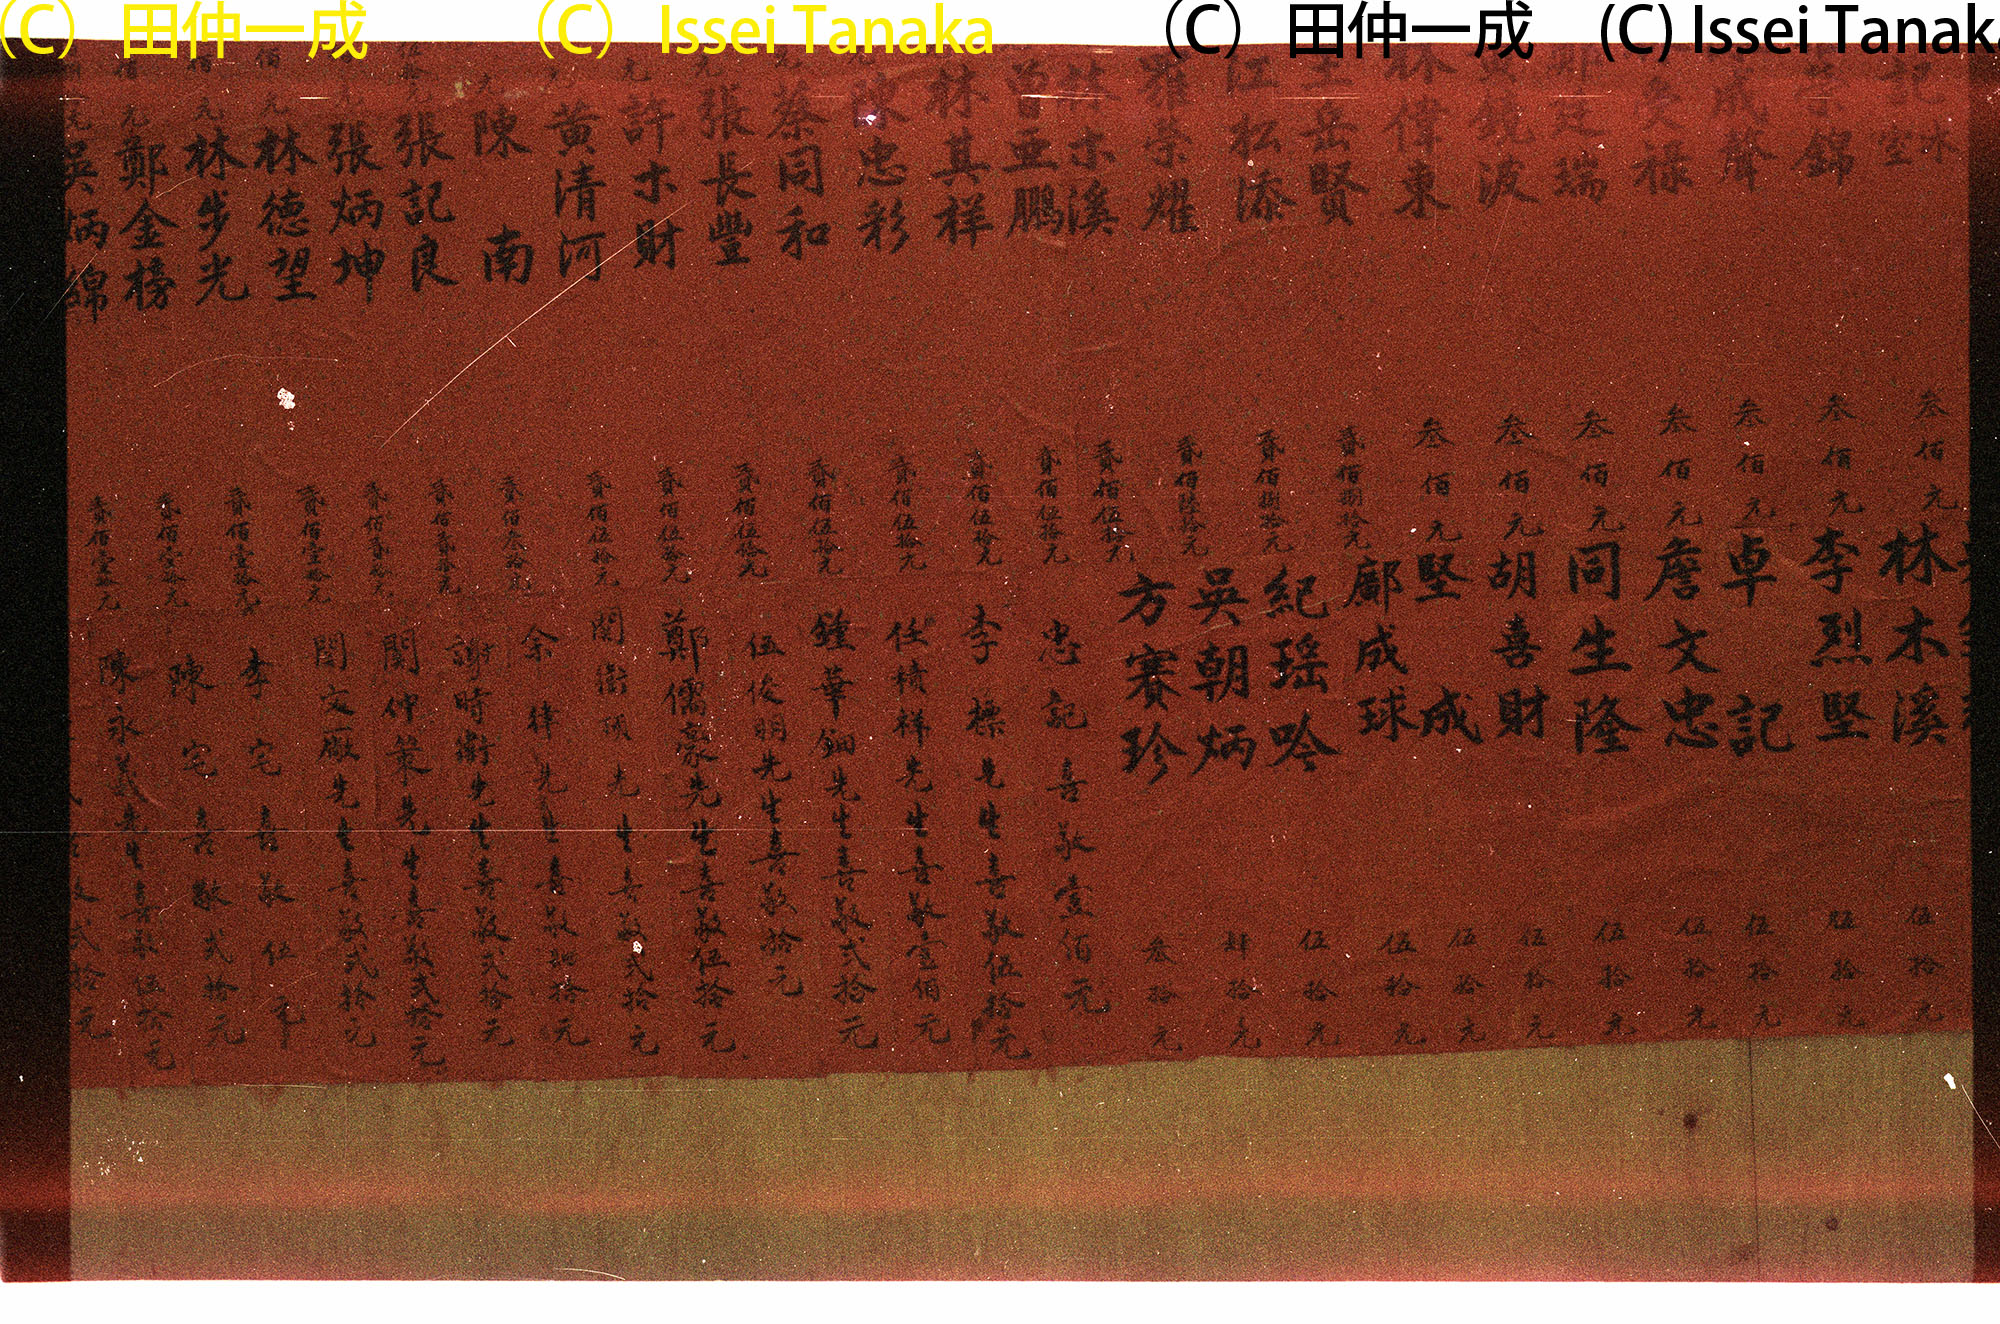 (C) 田仲一成 (C) Issei Tanaka (C) 田仲一成 (C) Issei Tanaka
錦
成聲
瑞
鏡波
林偉東
岳賢
江松添
羅榮耀
木溪
曾亞鵬
林其祥
陳忠彩
蔡同和
張長豐
元許木財
黃清河
元陳南
張記良
張炳坤
佰元林德望
佰元林步光
元鄭金榜
元吳炳錦
叁佰元林木溪
叁佰元李烈堅
叁佰元卓記
叁佰元詹文忠
叁佰元同生隆
叁佰元胡喜財
叁佰元堅成
貳佰捌拾元鄺成球
貳佰捌拾元紀瑶吟
貳佰陸拾元吳朝炳
貳佰伍拾元方賽珍
貳佰伍拾元
貳佰伍拾元
貳佰伍拾元
貳佰伍拾元
貳佰伍拾元
貳佰伍拾元
貳佰伍拾元
貳佰叁拾元
貳佰貳拾元
貳佰貳拾元
貳佰壹拾元
貳佰壹拾元
貳佰壹拾元
貳佰壹拾元
伍拾元
伍拾元
伍拾元
伍拾元
伍拾元
伍拾元
伍拾元
伍拾元
伍拾元
肆拾元
叁拾元
忠記喜敬壹佰元
李標先生喜敬伍拾元
任積祥先生喜敬壹佰元
鍾華鈿先生喜敬弍拾元
伍俊明先生喜敬拾元
鄭儒豪先生喜敬伍拾元
先生喜敬弍拾元
余律先生喜敬拾元
謝時衡先生喜敬弍拾元
關仲策先生喜敬弍拾元
關文廠先生喜敬弍拾元
李宅喜敬伍元
陳宅喜敬弍拾元
陳永義先生喜敬伍拾元
弍拾元